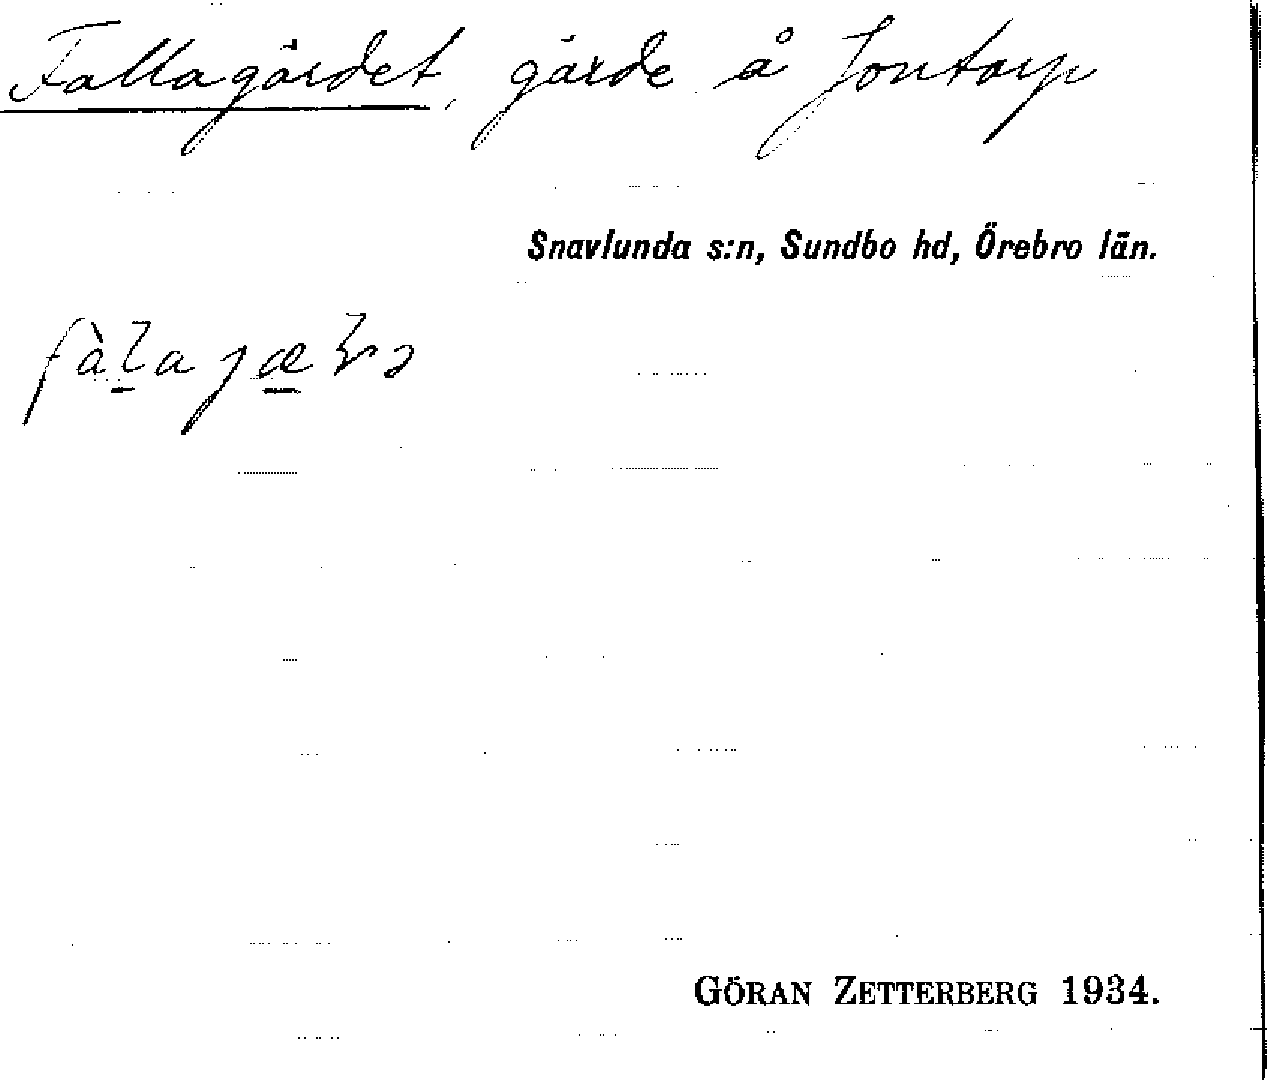 Fallagärdet, gärde å Jontorp
Snavlunda s:n, Sundbo hd, Örebro län.
GÖRAN ZETTERBERG 1934.